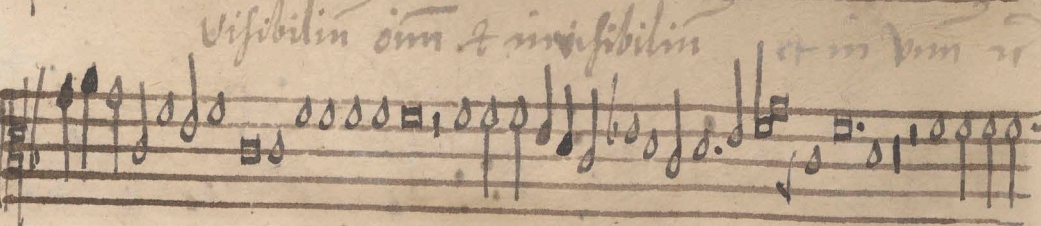 visibiliu̅ oi̅m̅ et invisibiliu̅ et in vnu̅